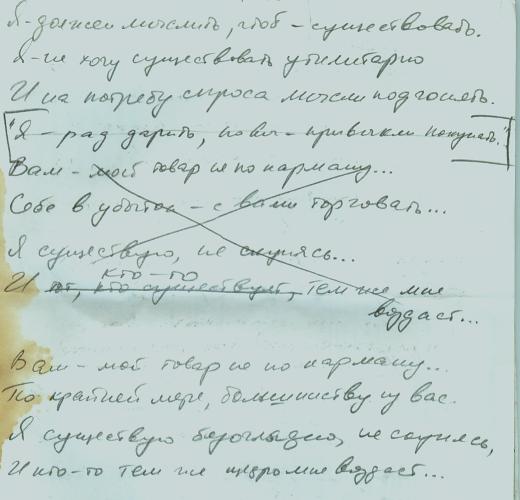 Я - должен мыслить, чтоб - существовать.
Я - не хочу существовать утилитарно
И на потребу спроса мысли подгонять.
"Я - рад дарить, но вы - привыкли покупать."
Вам - мой товар не по карману...
Себе в убыток - с вами торговать...
Я существую, не скупясь...
кто-то
И тот, кто существует, тем же мне
воздаст...
Вам - мой товар не по карману...
По крайней мере, большинству из вас.
Я существую безоглядно, не скупясь,
И кто-то тем же щедро мне воздаст...